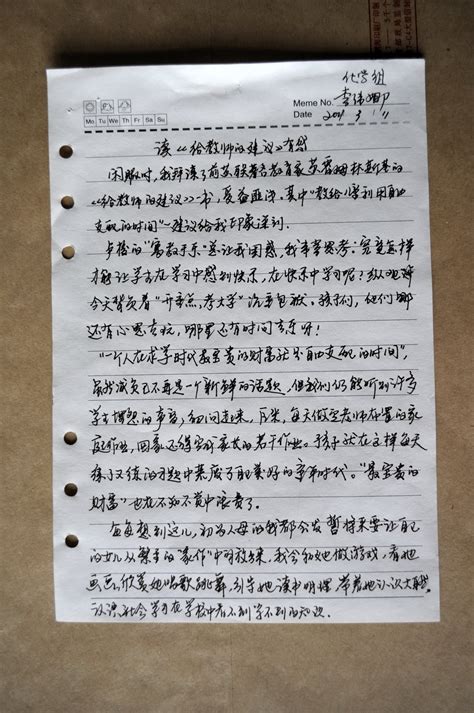 化学组
Memo No. 李伟娜
Mo Tu We Th Fr Sa Su
Date 2011 3 11
读《给教师的建议》有感
闲暇时,我拜读了前苏联著名教育家苏霍姆林斯基的
《给教师的建议》一书,受益匪浅。其中“教给学生利用自由
支配的时间”一建议给我印象深刻。
卢梭的“寓教于乐”总让我困惑,我常常思考:究竟怎样
才能让学生在学习中感到快乐,在快乐中学习呢?
今天背负着“升重点,考大学”沉重包袱的孩子们,他们哪
还有心思去玩,哪里还有时间去乐呀!
“一个人在求学时代最宝贵的财富就是自由支配的时间”,
虽然减负已不再是一个新鲜的话题,但我们仍能听到许多
学生埋怨的声音,细问起来,原来,每天做完老师布置的家
庭作业,回家还得完成家长的若干作业。孩子就在这样每天
练了又练的习题中荒废了最美好的童年时代。“最宝贵的
财富”也在不知不觉中浪费了。
每每想到这儿,初为人母的我都会发誓将来要让自己
的女儿从繁重的“家作”中解放出来,我会和她做游戏,看她
画画,欣赏她唱歌跳舞,引导她读书明理,带着她认识大自然,
认识社会,学习在学校中看不到学不到的知识。